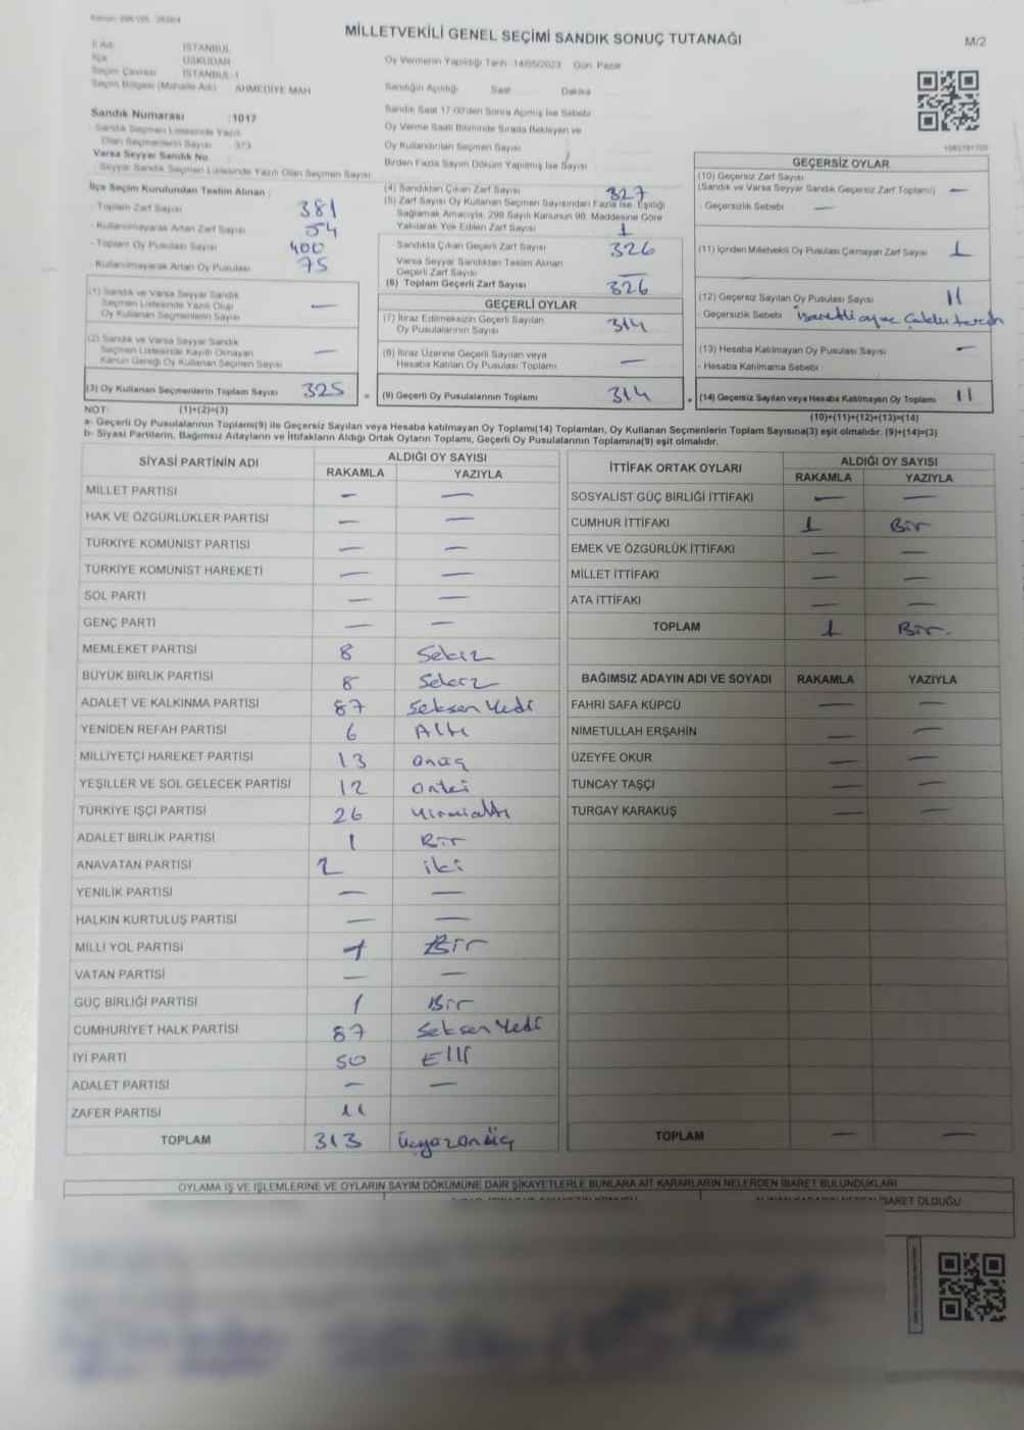 MİLLETVEKİLİ GENEL SEÇİMİ SANDIK SONUÇ TUTANAĞI
M/2
İSTANBUL
ÜSKÜDAR
İSTANBUL-1
Seçim Bölgesi (Mahalle Adı) AHMEDİYE MAH
Oy Vermenin Yapıldığı Tarih 14/05/2023 Gün Pazar
Sandığın Açıldığı Saat Dakika
Sandık Saat 17.00'den Sonra Açılmış İse Sebebi
Oy Verme Saati Bitiminde Sırada Bekleyen ve
Oy Kullandırılan Seçmen Sayısı
Birden Fazla Sayım Döküm Yapılmış İse Sayısı
Sandık Numarası :1017
Sandık Seçmen Listesinde Yazılı
Olan Seçmenlerin Sayısı 373
Varsa Seyyar Sandık No
Seyyar Sandık Seçmen Listesinde Yazılı Olan Seçmen Sayısı
İlçe Seçim Kurulundan Teslim Alınan :
- Toplam Zarf Sayısı 381
- Kullanılmayarak Artan Zarf Sayısı 54
- Toplam Oy Pusulası Sayısı 400
- Kullanılmayarak Artan Oy Pusulası 75
(1) Sandık ve Varsa Seyyar Sandık
Seçmen Listesinde Yazılı Olup
Oy Kullanan Seçmenlerin Sayısı —
(2) Sandık ve Varsa Seyyar Sandık
Seçmen Listesinde Kayıtlı Olmayan
Kanun Gereği Oy Kullanan Seçmen Sayısı —
(3) Oy Kullanan Seçmenlerin Toplam Sayısı 325
(4) Sandıktan Çıkan Zarf Sayısı 327
(5) Zarf Sayısı Oy Kullanan Seçmen Sayısından Fazla İse, Eşitliği
Sağlamak Amacıyla, 298 Sayılı Kanunun 98. Maddesine Göre
Yakılarak Yok Edilen Zarf Sayısı 1
Sandıkta Çıkan Geçerli Zarf Sayısı 326
Varsa Seyyar Sandıktan Teslim Alınan
Geçerli Zarf Sayısı —
(6) Toplam Geçerli Zarf Sayısı 326
GEÇERLİ OYLAR
(7) İtiraz Edilmeksizin Geçerli Sayılan
Oy Pusulalarının Sayısı 314
(8) İtiraz Üzerine Geçerli Sayılan veya
Hesaba Katılan Oy Pusulası Toplamı —
(9) Geçerli Oy Pusulalarının Toplamı 314
GEÇERSİZ OYLAR
(10) Geçersiz Zarf Sayısı
(Sandık ve Varsa Seyyar Sandık Geçersiz Zarf Toplamı) —
- Geçersizlik Sebebi —
(11) İçinden Milletvekili Oy Pusulası Çıkmayan Zarf Sayısı 1
(12) Geçersiz Sayılan Oy Pusulası Sayısı 11
Geçersizlik Sebebi
(13) Hesaba Katılmayan Oy Pusulası Sayısı —
- Hesaba Katılmama Sebebi
(14) Geçersiz Sayılan veya Hesaba Katılmayan Oy Toplamı 11
NOT: (1)+(2)=(3) (10)+(11)+(12)+(13)=(14)
a- Geçerli Oy Pusulalarının Toplamı(9) ile Geçersiz Sayılan veya Hesaba katılmayan Oy Toplamı(14) Toplamları, Oy Kullanan Seçmenlerin Toplam Sayısına(3) eşit olmalıdır. (9)+(14)=(3)
b- Siyasi Partilerin, Bağımsız Adayların ve İttifakların Aldığı Ortak Oyların Toplamı, Geçerli Oy Pusulalarının Toplamına(9) eşit olmalıdır.
SİYASİ PARTİNİN ADI ALDIĞI OY SAYISI
RAKAMLA YAZIYLA
MİLLET PARTİSİ — —
HAK VE ÖZGÜRLÜKLER PARTİSİ — —
TÜRKİYE KOMÜNİST PARTİSİ — —
TÜRKİYE KOMÜNİST HAREKETİ — —
SOL PARTİ — —
GENÇ PARTİ — —
MEMLEKET PARTİSİ 8 Sekiz
BÜYÜK BİRLİK PARTİSİ 8 Sekiz
ADALET VE KALKINMA PARTİSİ 87 Seksen Yedi
YENİDEN REFAH PARTİSİ 6 Altı
MİLLİYETÇİ HAREKET PARTİSİ 13 onüç
YEŞİLLER VE SOL GELECEK PARTİSİ 12 oniki
TÜRKİYE İŞÇİ PARTİSİ 26 Yirmialtı
ADALET BİRLİK PARTİSİ 1 Bir
ANAVATAN PARTİSİ 2 iki
YENİLİK PARTİSİ — —
HALKIN KURTULUŞ PARTİSİ — —
MİLLİ YOL PARTİSİ 1 Bir
VATAN PARTİSİ — —
GÜÇ BİRLİĞİ PARTİSİ 1 Bir
CUMHURİYET HALK PARTİSİ 87 Seksen Yedi
İYİ PARTİ 50 Elli
ADALET PARTİSİ — —
ZAFER PARTİSİ 11
TOPLAM 313 Üçyüzonüç
İTTİFAK ORTAK OYLARI ALDIĞI OY SAYISI
RAKAMLA YAZIYLA
SOSYALİST GÜÇ BİRLİĞİ İTTİFAKI — —
CUMHUR İTTİFAKI 1 Bir
EMEK VE ÖZGÜRLÜK İTTİFAKI — —
MİLLET İTTİFAKI — —
ATA İTTİFAKI — —
TOPLAM 1 Bir.
BAĞIMSIZ ADAYIN ADI VE SOYADI RAKAMLA YAZIYLA
FAHRİ SAFA KÜPCÜ — —
NİMETULLAH ERŞAHİN — —
ÜZEYFE OKUR — —
TUNCAY TAŞÇI — —
TURGAY KARAKUŞ — —
TOPLAM — —
OYLAMA İŞ VE İŞLEMLERİNE VE OYLARIN SAYIM DÖKÜMÜNE DAİR ŞİKAYETLERLE BUNLARA AİT KARARLARIN NELERDEN İBARET BULUNDUKLARI
İBARET OLDUĞU